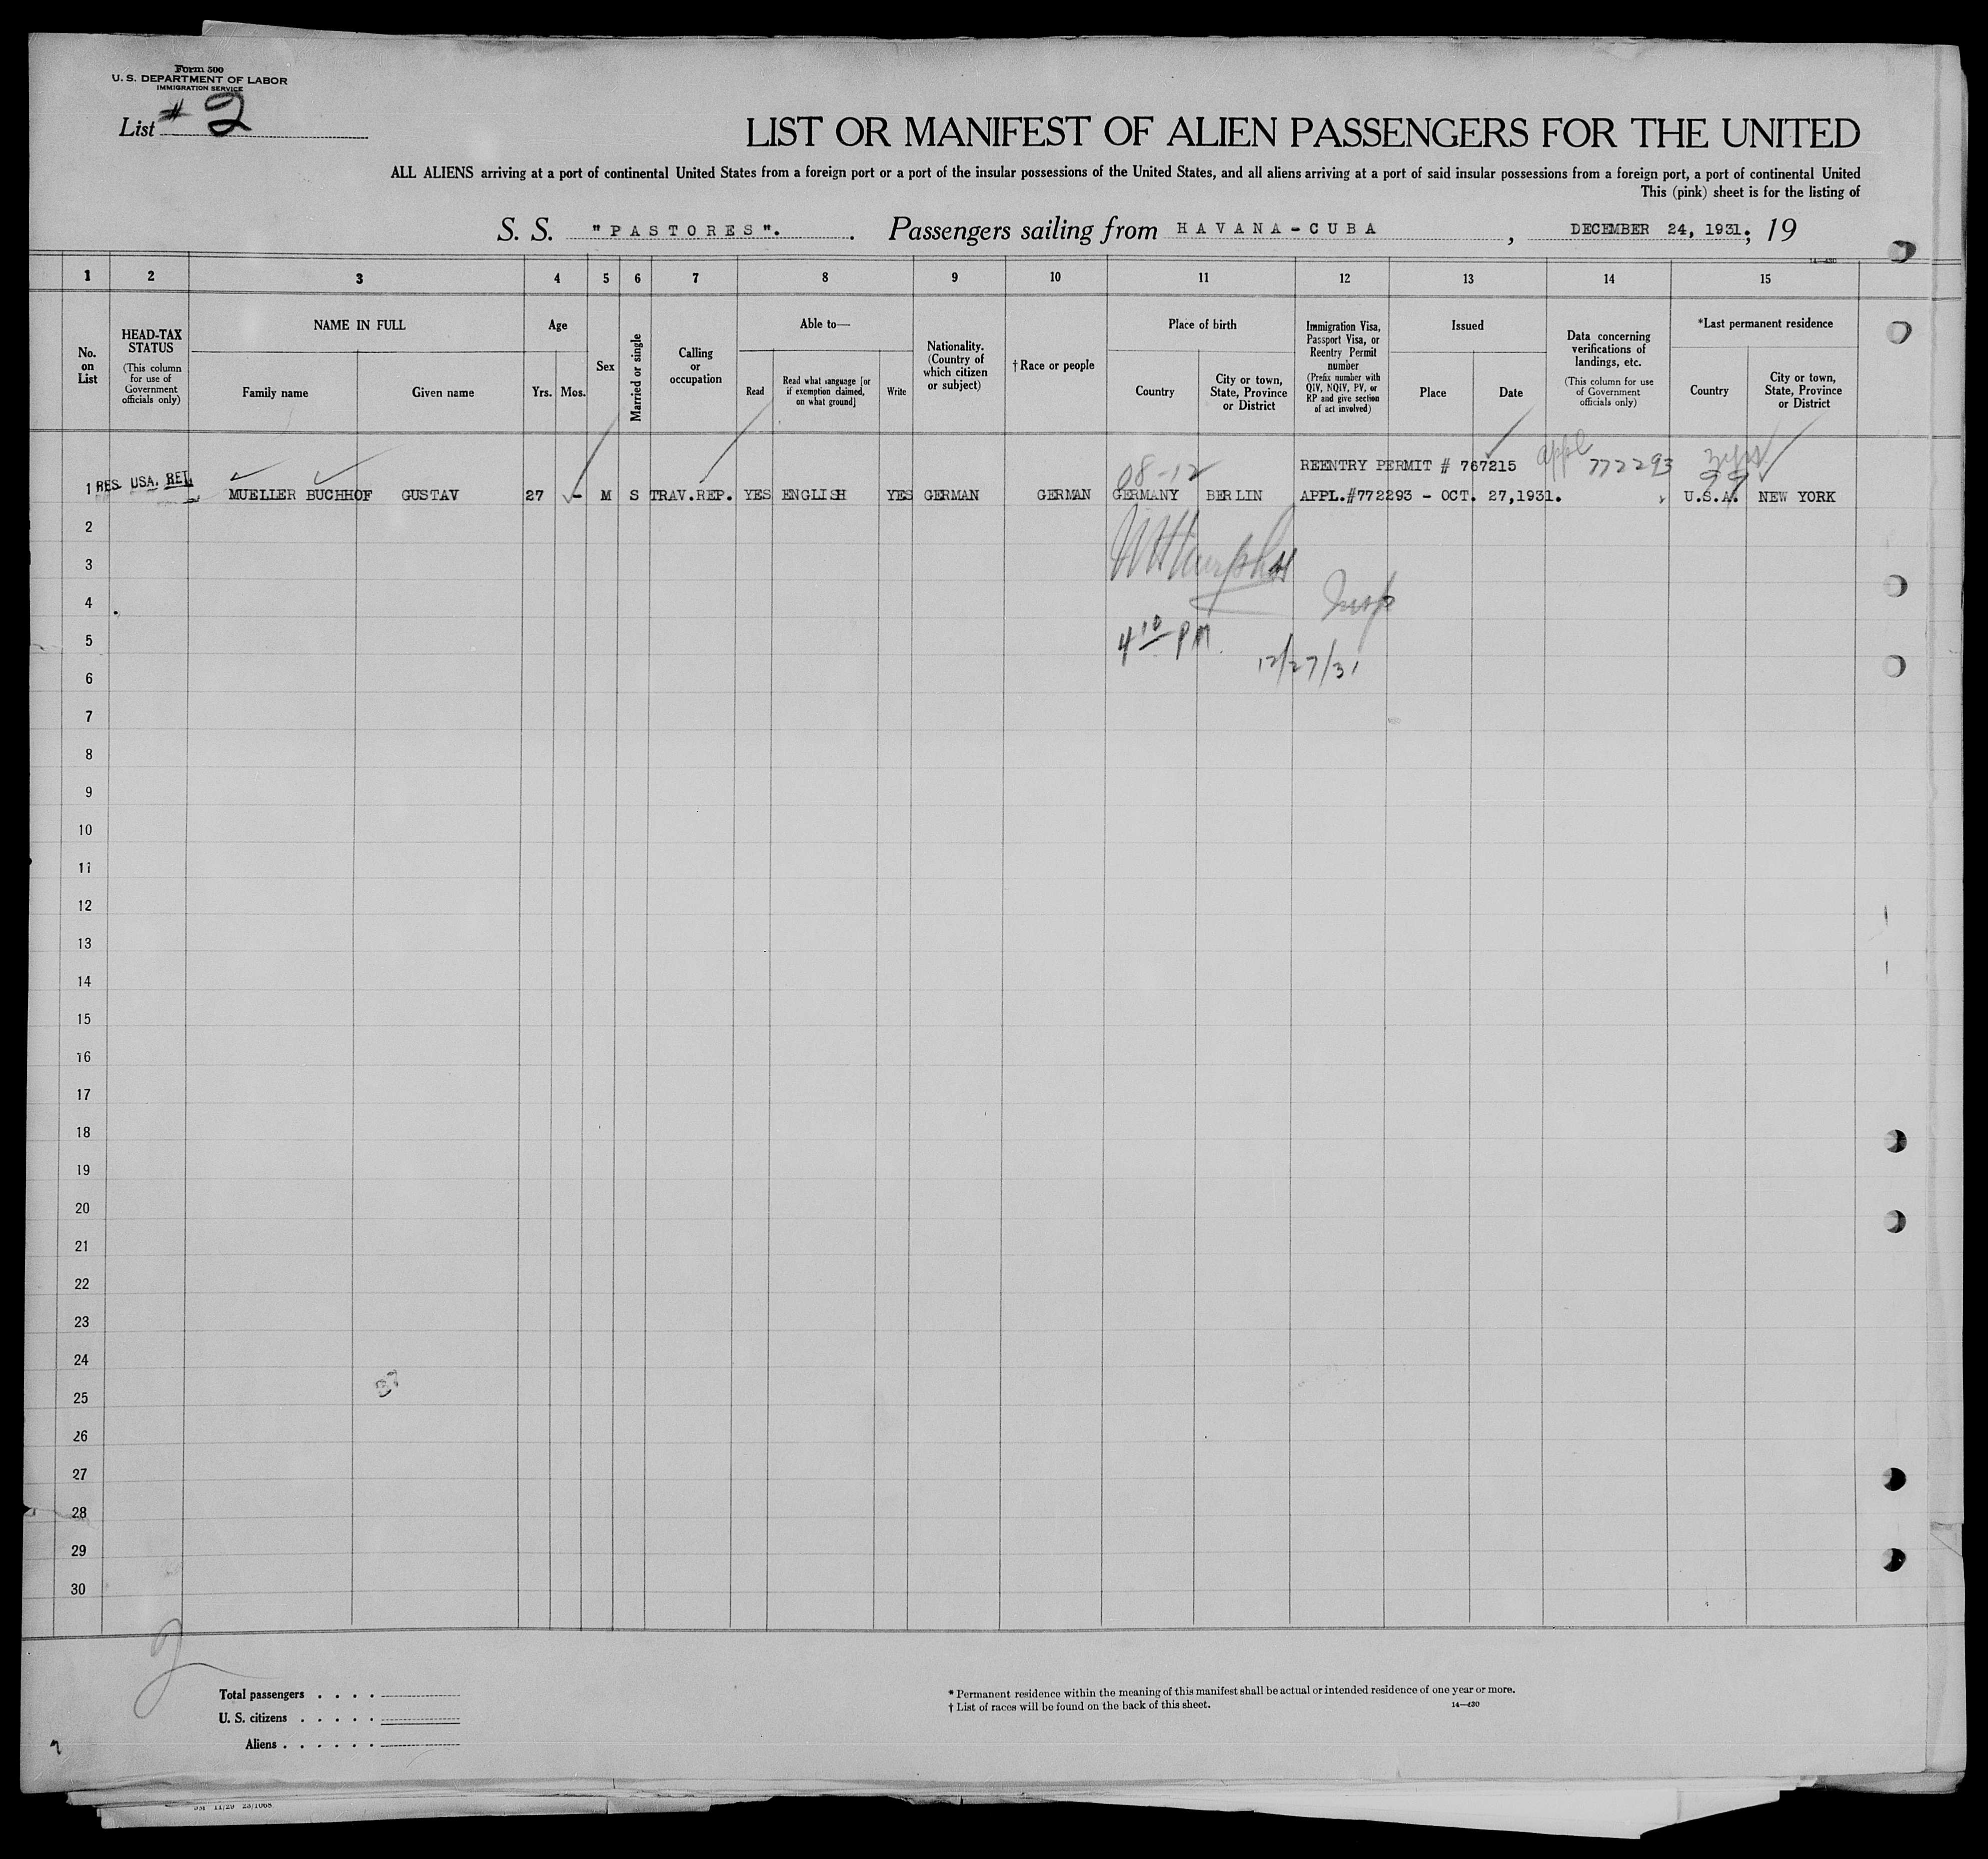 Form 500
U. S. DEPARTMENT OF LABOR
IMMIGRATION SERVICE
List # 2
LIST OR MANIFEST OF ALIEN PASSENGERS FOR THE UNITED
ALL ALIENS arriving at a port of continental United States from a foreign port or a port of the insular possessions of the United States, and all aliens arriving at a port of said insular possessions from a foreign port, a port of continental United
This (pink) sheet is for the listing of
S. S. "PASTORES". Passengers sailing from HAVANA-CUBA, DECEMBER 24, 1931; 19
14—430
1 2 3 4 5 6 7 8 9 10 11 12 13 14 15
No. on List
HEAD-TAX STATUS
(This column for use of Government officials only)
NAME IN FULL
Family name
Given name
Age
Yrs.
Mos.
Sex
Married or single
Calling or occupation
Able to—
Read
Read what language [or if exemption claimed, on what ground]
Write
Nationality. (Country of which citizen or subject)
† Race or people
Place of birth
Country
City or town, State, Province or District
Immigration Visa, Passport Visa, or Reentry Permit number
(Prefix number with QIV, NQIV, PV, or RP and give section of act involved)
Issued
Place
Date
Data concerning verifications of landings, etc.
(This column for use of Government officials only)
*Last permanent residence
Country
City or town, State, Province or District
08-12
REENTRY PERMIT # 767215 appl 772293
1 RES. USA. RET. MUELLER BUCHHOF GUSTAV 27 - M S TRAV.REP. YES ENGLISH YES GERMAN GERMAN GERMANY BERLIN APPL.#772293 - OCT. 27,1931. U.S.A. NEW YORK
2
3
Insp
4
4 10 PM
5
12/27/31
6
7
8
9
10
11
12
13
14
15
16
17
18
19
20
21
22
23
24
25
26
27
28
29
30
2
Total passengers . . . .
U. S. citizens . . . . .
Aliens . . . . . .
* Permanent residence within the meaning of this manifest shall be actual or intended residence of one year or more.
† List of races will be found on the back of this sheet.
14—430